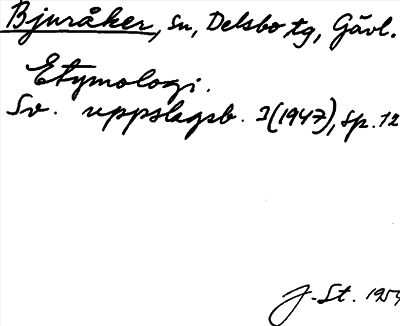 Bjuråker, sn, Delsbo tg, Gävl.
Etymologi.
Sv. uppslagsb. 3(1947), sp. 12
J. St. 1954